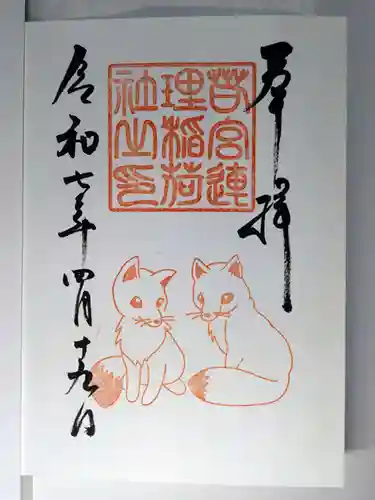 奉拝
苛宮連
理稲荷
社之印
令和七年四月十九日